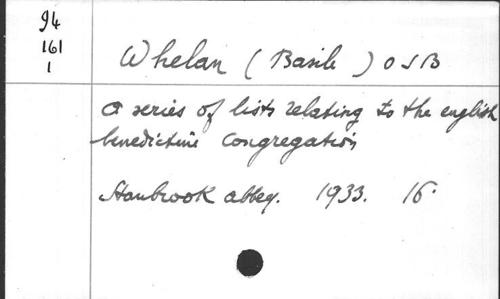 94
161
1
Whelan (Basile) OSB
a series of lists relating to the english
benedictine Congregation
Stanbrook abbey. 1933. 16°